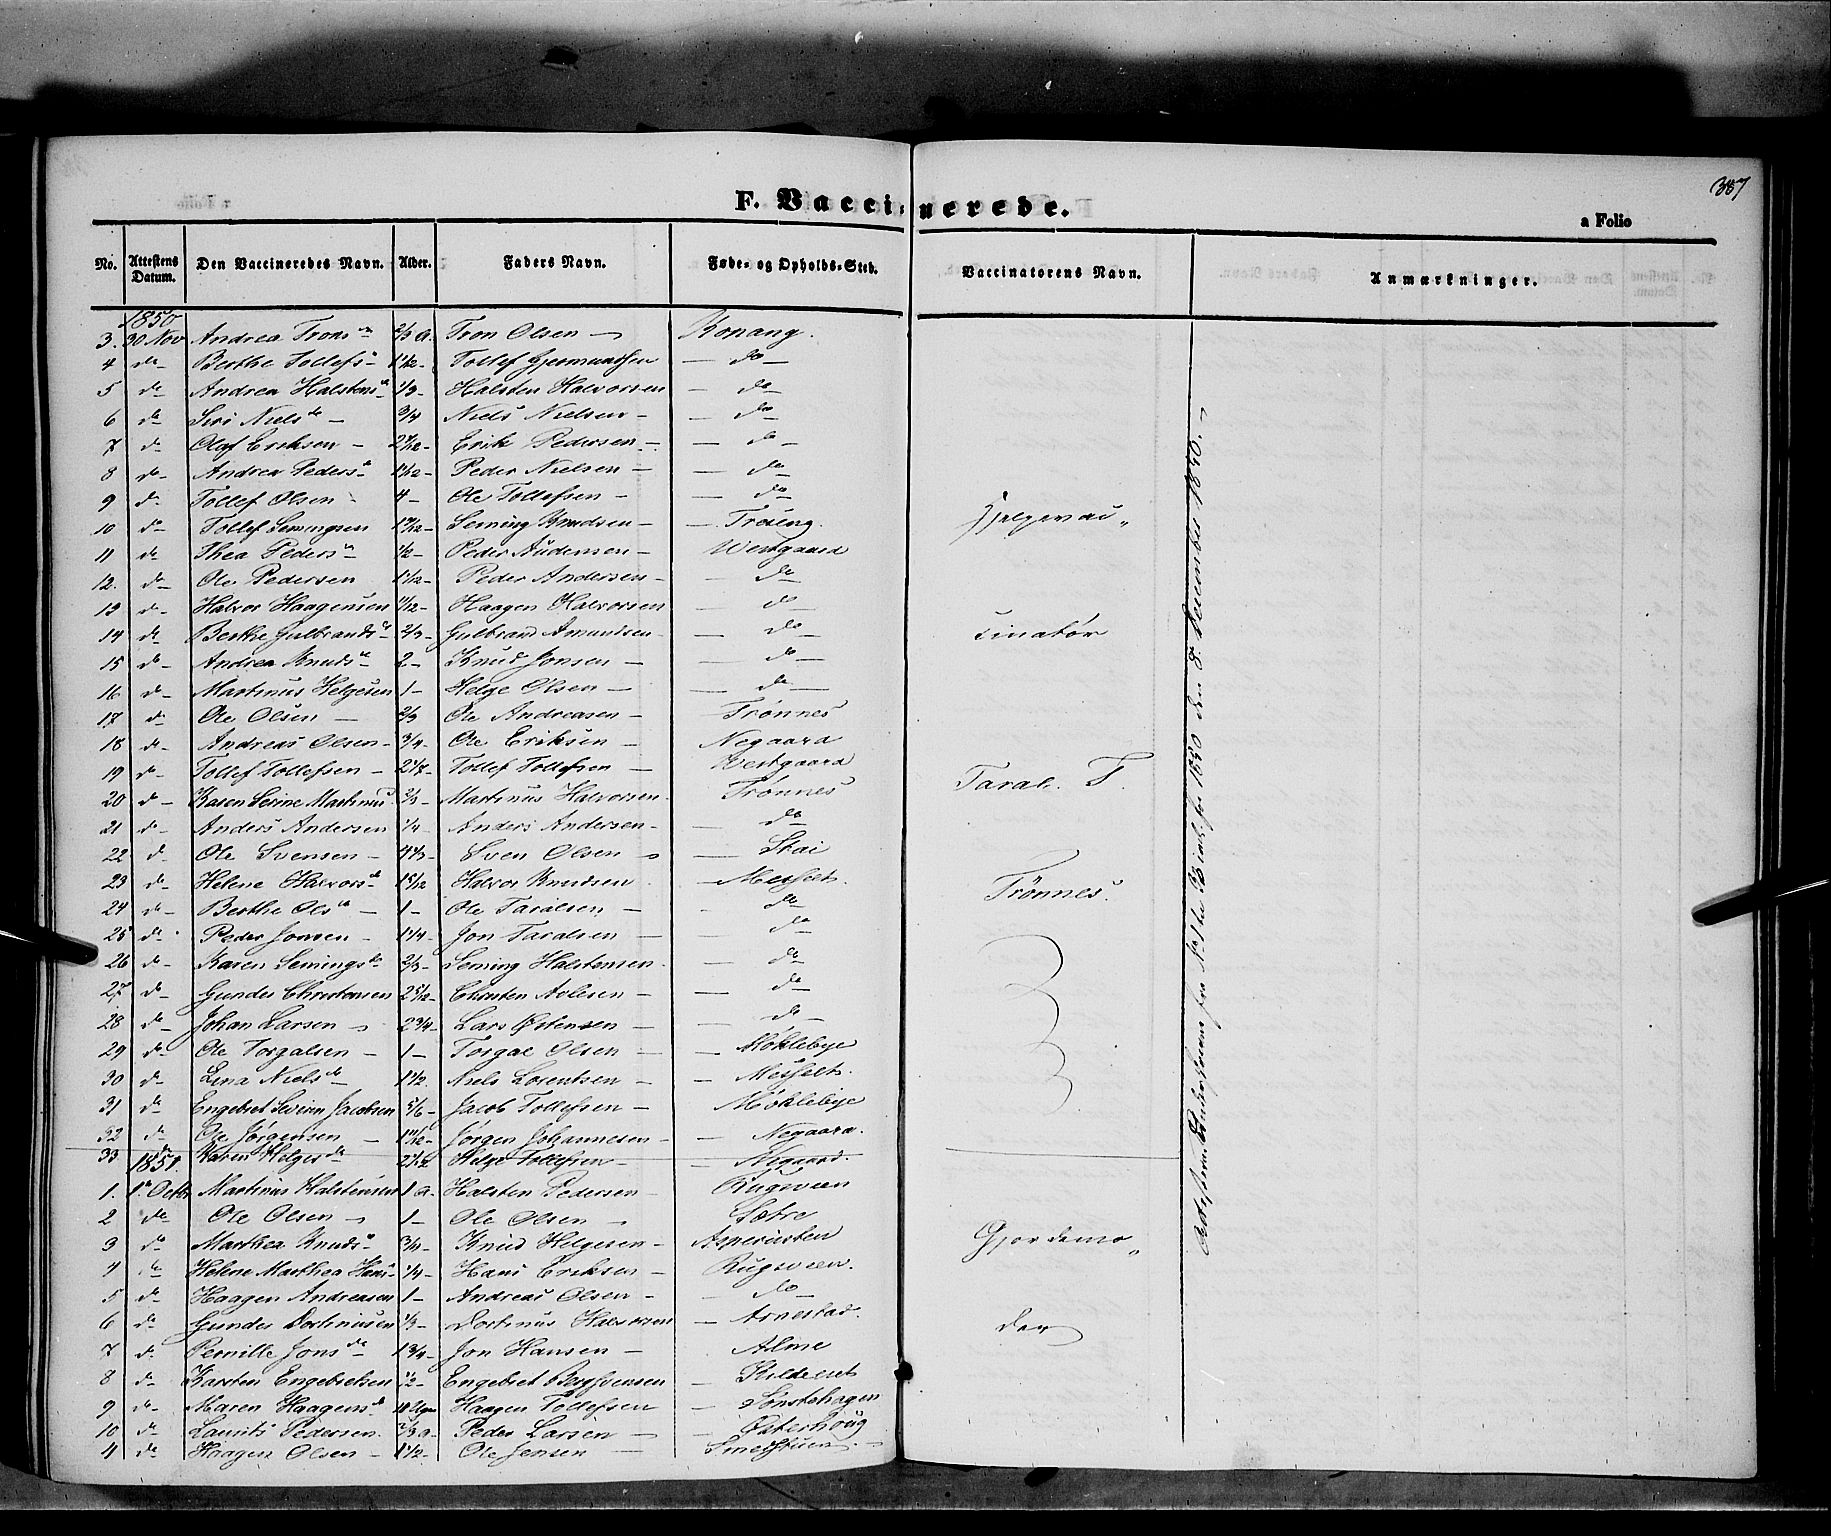 387
F. Vaccinerede.
a Folio
No. Attestens Datum. Den Vaccineredes Navn. Alder. Faders Navn. Føde- og Opholds-Sted. Vaccinatorens Navn. Anmærkninger.
1850
3. 30 Nov Andrea Tronsda 2/3 a. Tron Olsen Konang.
4 do Berthe Tollefsd Tollef Gjermundsen do
5 do Andrea Halstensd 1/3 Halsten Halvorsen do
6 do Siri Nielsda 3/4 Niels Nielsen do
7 do Olaf Eriksen 2 7/12 Erik Pedersen do
8 do Andrea Pedersd Peder Nielsen do
9 do Tollef Olsen 4 Ole Tollefsen do
10 do Tollef Semingsen Seming Knudsen Trøeng.
11 do Thea Pedersda 1/2 Peder Andersen Westgaard
12. do Ole Pedersen Peder Andersen do
13 do Halvor Haagensen 11/12 Haagen Halvorsen do
14 do Berthe Gulbrandsd 2/3 Gulbrand Amundsen do
15 do Andrea Knudsd 2 Knud Jonsen do
16 do Martinus Helgesen 1 Helge Olsen do
17 do Ole Olsen 2/3 Ole Andreasen Trønnes
18 do Andreas Olsen 3/4 Ole Eriksen Negaard
19 do Tollef Tollefsen Tollef Tollefsen Westgaard
20 do Karen Serine Martinusd 2/3 Martinus Halvorsen Trønnes
21 do Anders Andersen 1/4 Anders Andersen do
22 do Ole Svensen Sven Olsen Stai
23 do Helene Halvorsd 1 5/12 Halvor Knudsen Messelt.
24 do Berthe Olsda 1 Ole Taralsen do
25 do Peder Jonsen 1 1/4 Jon Taralsen do
26 do Karen Semingsda 2/3 Seming Halstensen do
27 do Gunder Christensen 2 5/12 Christen do
28 do Johan Larsen 2 3/4 Lars Østensen do
29 do Ole Torgalsen 1 Torgal Olsen Møklebye
30 do Lina Nielsda 1 1/2 Niels Lorentsen Messelt.
31 do Engebret Severin Jacobsen 5/6 Jacob Tollefsen Møklebye
32 do Ole Jørgensen 1 11/12 Jørgen Johannesen Negaard.
33 do Karen Helgesda Helge Tollefsen Negaard.
1851.
1. 1ste Octbr Martinus Halstensen 1 a. Halsten Pedersen Rugsveen
2 do Ole Olsen 1 Ole Olsen Sætre
3 do Marthea Knudsd 3/4 Knud Helgesen
4 do Helene Marthea Hansd 1/4 Hans Eriksen Rugsveen.
5 do Haagen Andreasen 1 Andreas Olsen do
6 do Gunder Dortinusen 1/3 Dortinus Halvorsen Arnestad.
7 do Pernille Jonsda 1 3/4 Jon Hansen Alme
8 do Karsten Engebretsen 1/2 Engebret Bergsvensen Kilderet
9 do Maren Haagensd 10 Uger Haagen Tollefsen Sønstehagen
10 do Laurits Pedersen. 2/3 a Peder Larsen Østerhoug
11 do Haagen Olsen 1 1/2 Ole Jensen Smedstuen.
Hjelpevac„
cinatør
Taral. T.
Trønnes.
Gjordemo„
der
den 8 December 1850.